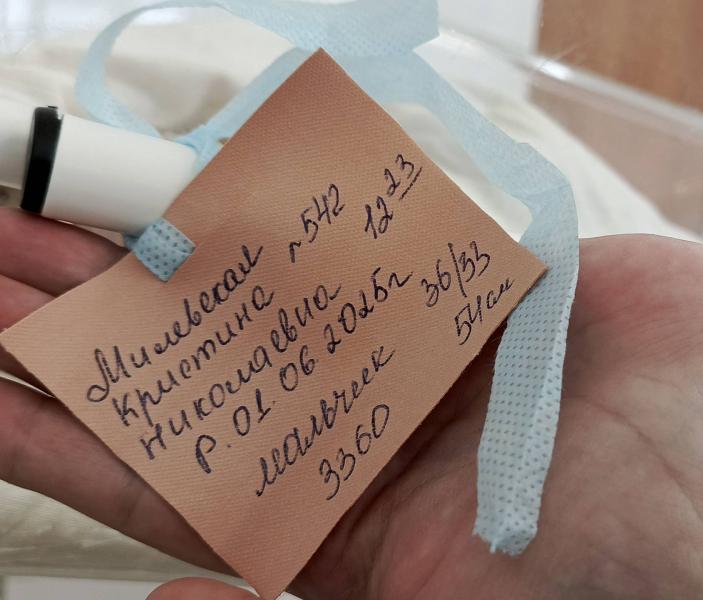 Милевская г542
Кристина 12 23
Николаевна
Р. 01. 06. 2025г 36/33
мальчик 54см
3360